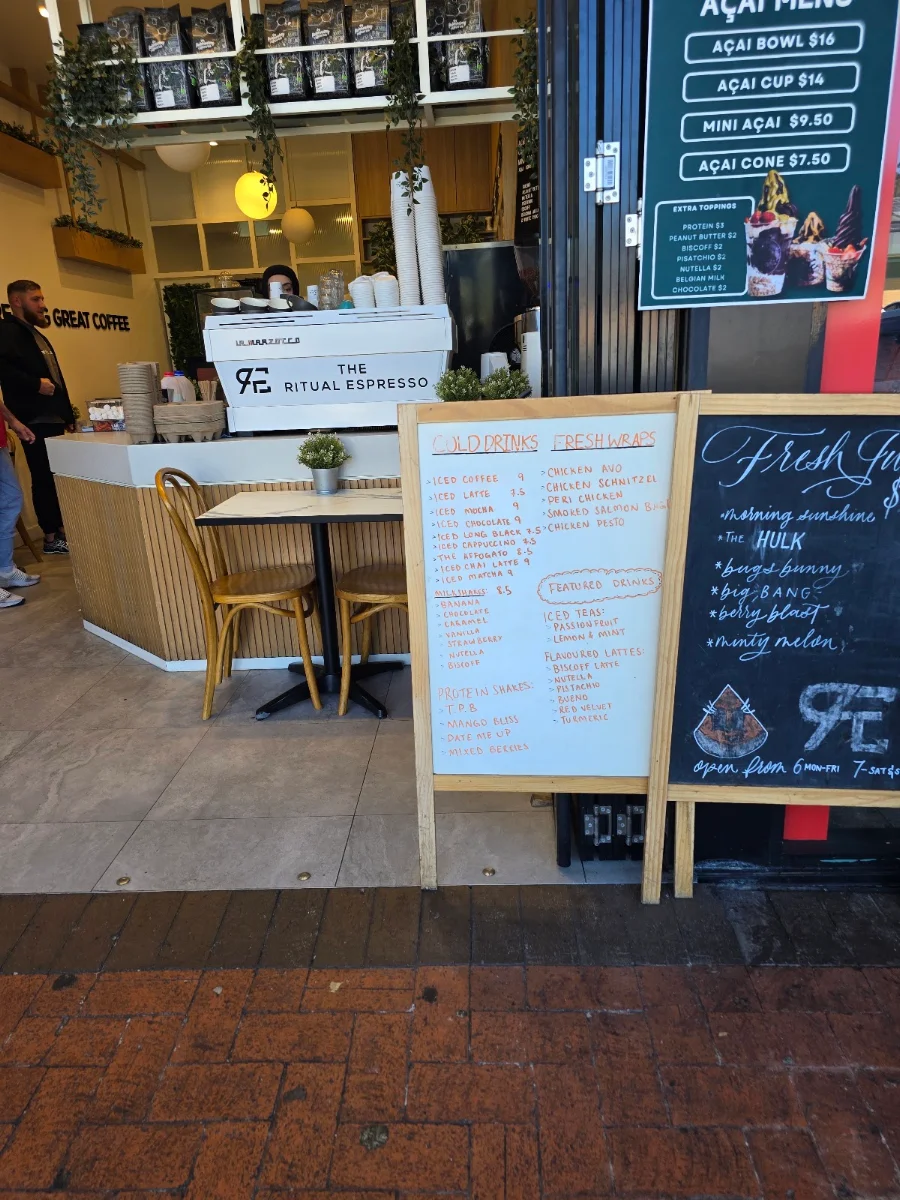 AÇAI MENU
AÇAI BOWL $16
AÇAI CUP $14
MINI AÇAI $9.50
AÇAI CONE $7.50
EXTRA TOPPINGS
PROTEIN $3
PEANUT BUTTER $2
BISCOFF $2
PISATCHIO $2
NUTELLA $2
BELGIAN MILK
CHOCOLATE $2
GREAT COFFEE
LA MARZOCCO
RE
THE
RITUAL ESPRESSO
COLD DRINKS
>ICED COFFEE 9
>ICED LATTE 7.5
>ICED MOCHA 9
>ICED CHOCOLATE 9
>ICED LONG BLACK 7.5
>ICED CAPPUCCINO 8.5
>THE AFFOGATO 8.5
>ICED CHAI LATTE 9
>ICED MATCHA 9
MILKSHAKE: 8.5
-BANANA
-CHOCOLATE
-CARAMEL
-VANILLA
-STRAWBERRY
-NUTELLA
-BISCOFF
PROTEIN SHAKES:
-T.P.B
-MANGO BLISS
-DATE ME UP
-MIXED BERRIES
FRESH WRAPS
>CHICKEN AVO
>CHICKEN SCHNITZEL
>PERI CHICKEN
>SMOKED SALMON
>CHICKEN PESTO
FEATURED DRINKS
ICED TEAS:
-PASSIONFRUIT
-LEMON & MINT
FLAVOURED LATTES:
-BISCOFF LATTE
-NUTELLA
-PISTACHIO
-BUENO
-RED VELVET
-TURMERIC
Fresh Ju
$
*morning sunshine
*THE HULK
*bugs bunny
*big BANG
*berry blast
*minty melon
RE
open from 6 MON-FRI 7-SAT&S